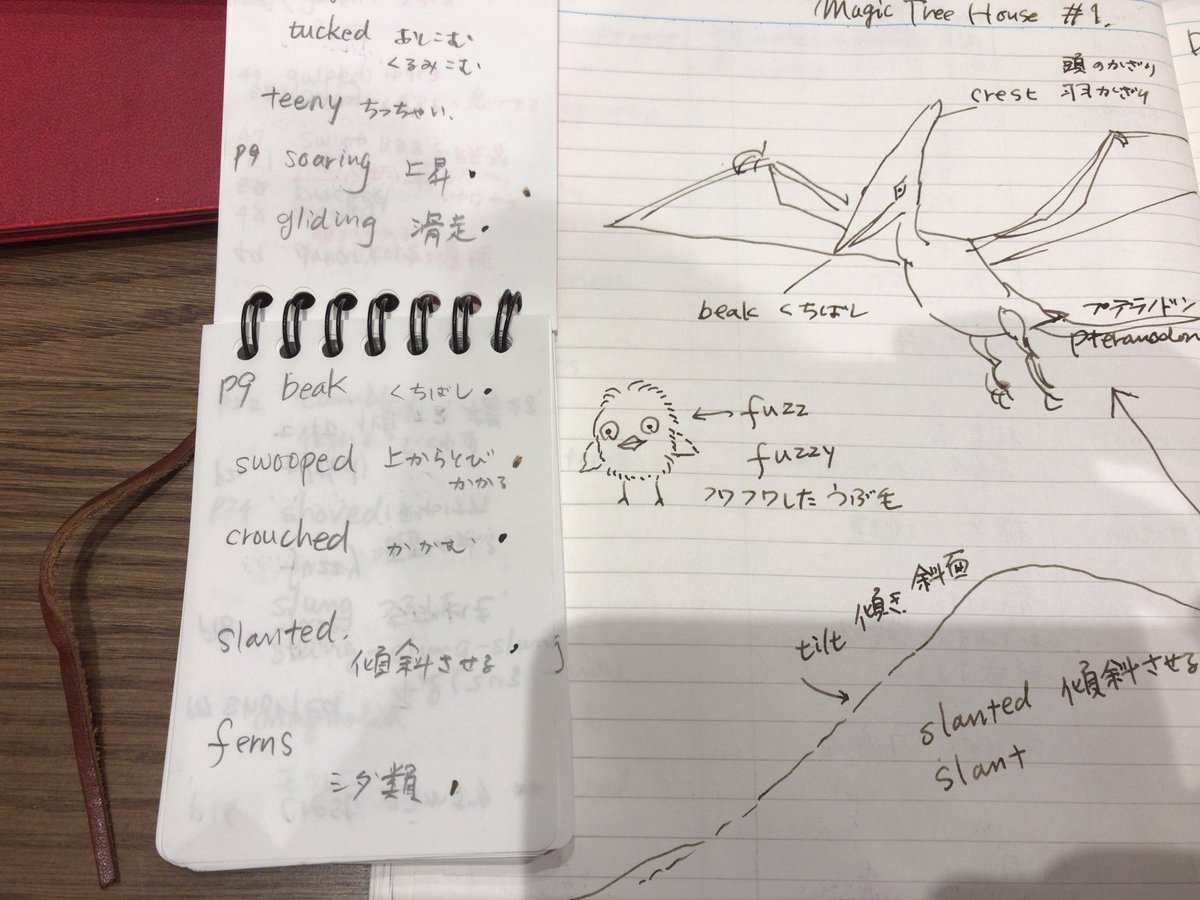 tucked おしこむ
くるみこむ
teeny ちっちゃい.
p9 soaring 上昇.
gliding 滑走.
p9 beak くちばし.
swooped 上からとび
かかる
crouched かがむ.
slanted.
傾斜させる
ferns
シダ類
Magic Tree House #1.
頭のかざり
crest 羽かざり
beak くちばし
プテラノドン
pteranodon
fuzz
fuzzy
フワフワした うぶ毛
tilt 傾き 斜面
slanted 傾斜させる
slant